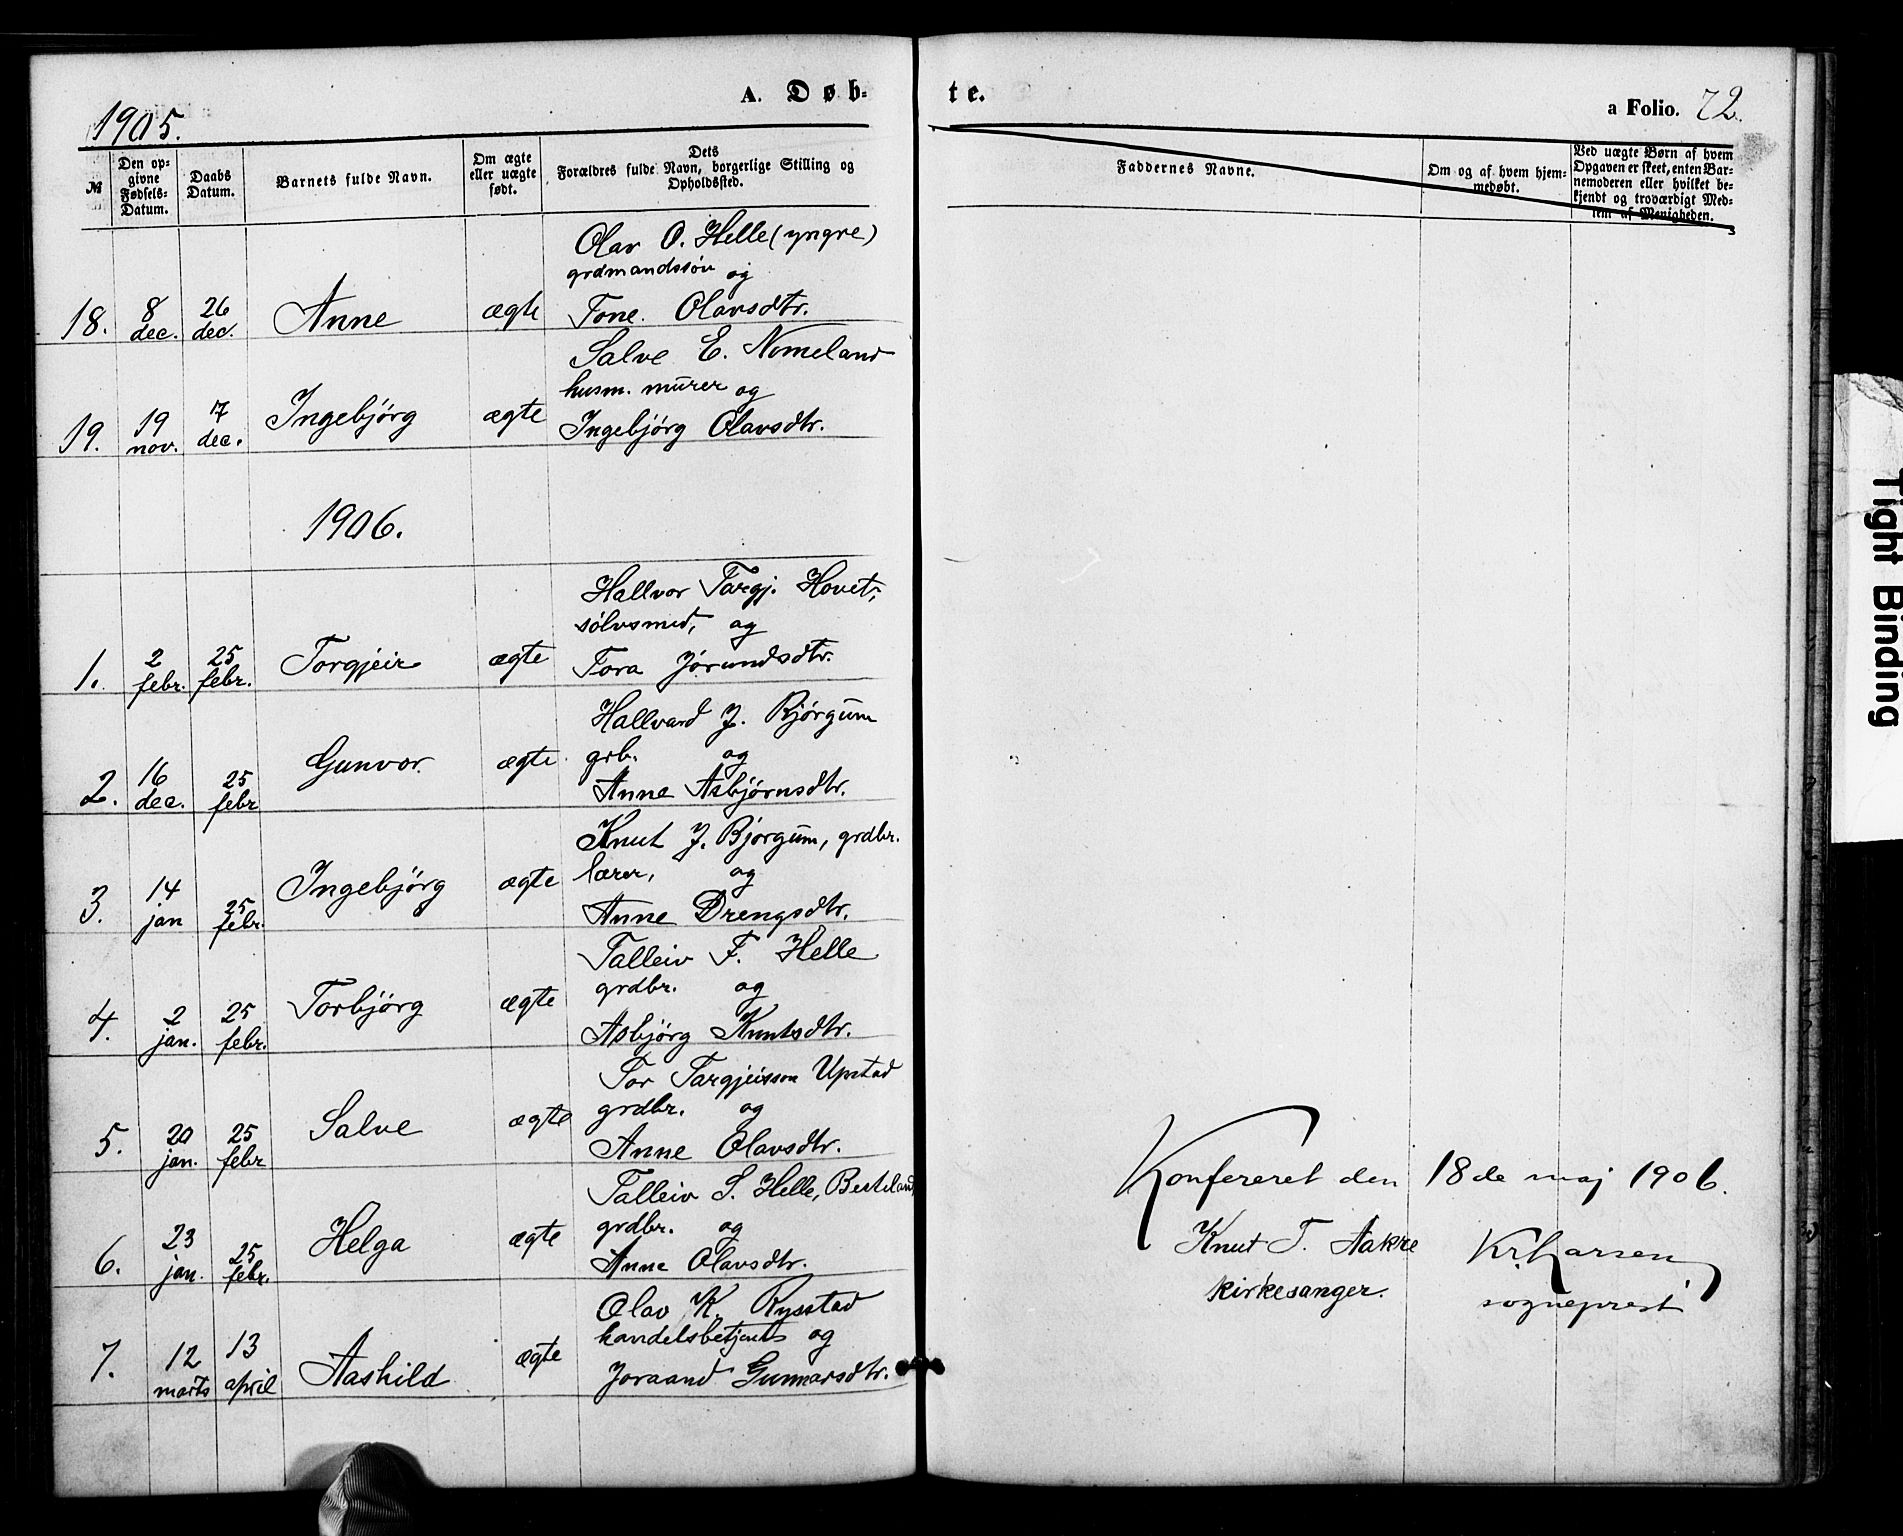 A. Døb-
te.
a Folio. 72.
1905.
№
Den op-
givne
Fødsels-
Datum.
Daabs
Datum.
Barnets fulde Navn.
Om ægte
eller uægte
født.
Dets
Forældres fulde Navn, borgerlige Stilling og
Opholdssted.
Faddernes Navne.
Om og af hvem hjem-
medøbt.
Ved uægte Børn af hvem
Opgaven er skeet, enten Bar-
nemoderen eller hvilket be-
kjendt og troværdigt Med-
lem af Menigheden.
Olav O. Helle (yngre)
grdmandssön og
18. 8 dec. 26 dec. Anne ægte Tone Olavsdtr.
Salve E. Nomeland
husm. murer og
19. 19 nov. 17 dec. Ingebjörg ægte Ingebjörg Olavsdtr.
1906.
Hallvor Targj. Hovet,
sölvsmed, og
1. 2 febr. 25 febr. Torgjeir ægte Tora Jörundsdtr.
Hallvard J. Bjørgum
grb. og
2. 16 dec. 25 febr Gunvor ægte Anne Asbjörnsdtr.
Knut J. Bjørgum, grdbr.
lærer, og
3. 14 jan 25 febr. Ingebjörg ægte Anne Drengsdtr.
Talleiv T. Helle
grdbr. og
4. 2 jan. 25 febr. Torbjörg ægte Asbjörg Knutsdtr.
Tor Targjeisson Upstad
grdbr. og
5. 20 jan. 25 febr Salve ægte Anne Olavsdtr.
Talleiv S. Helle, Besteland
grdbr. og
6. 23 jan. 25 febr. Helga ægte Anne Olavsdtr.
Olav K. Rysstad
handelsbetjent og
7. 12 marts 13 april Aashild ægte Joraand Gunnarsdtr.
Konfereret den 18de maj 1906.
Knut T. Aakre Kr. Larsen
kirkesanger. sogneprest
Tight Binding